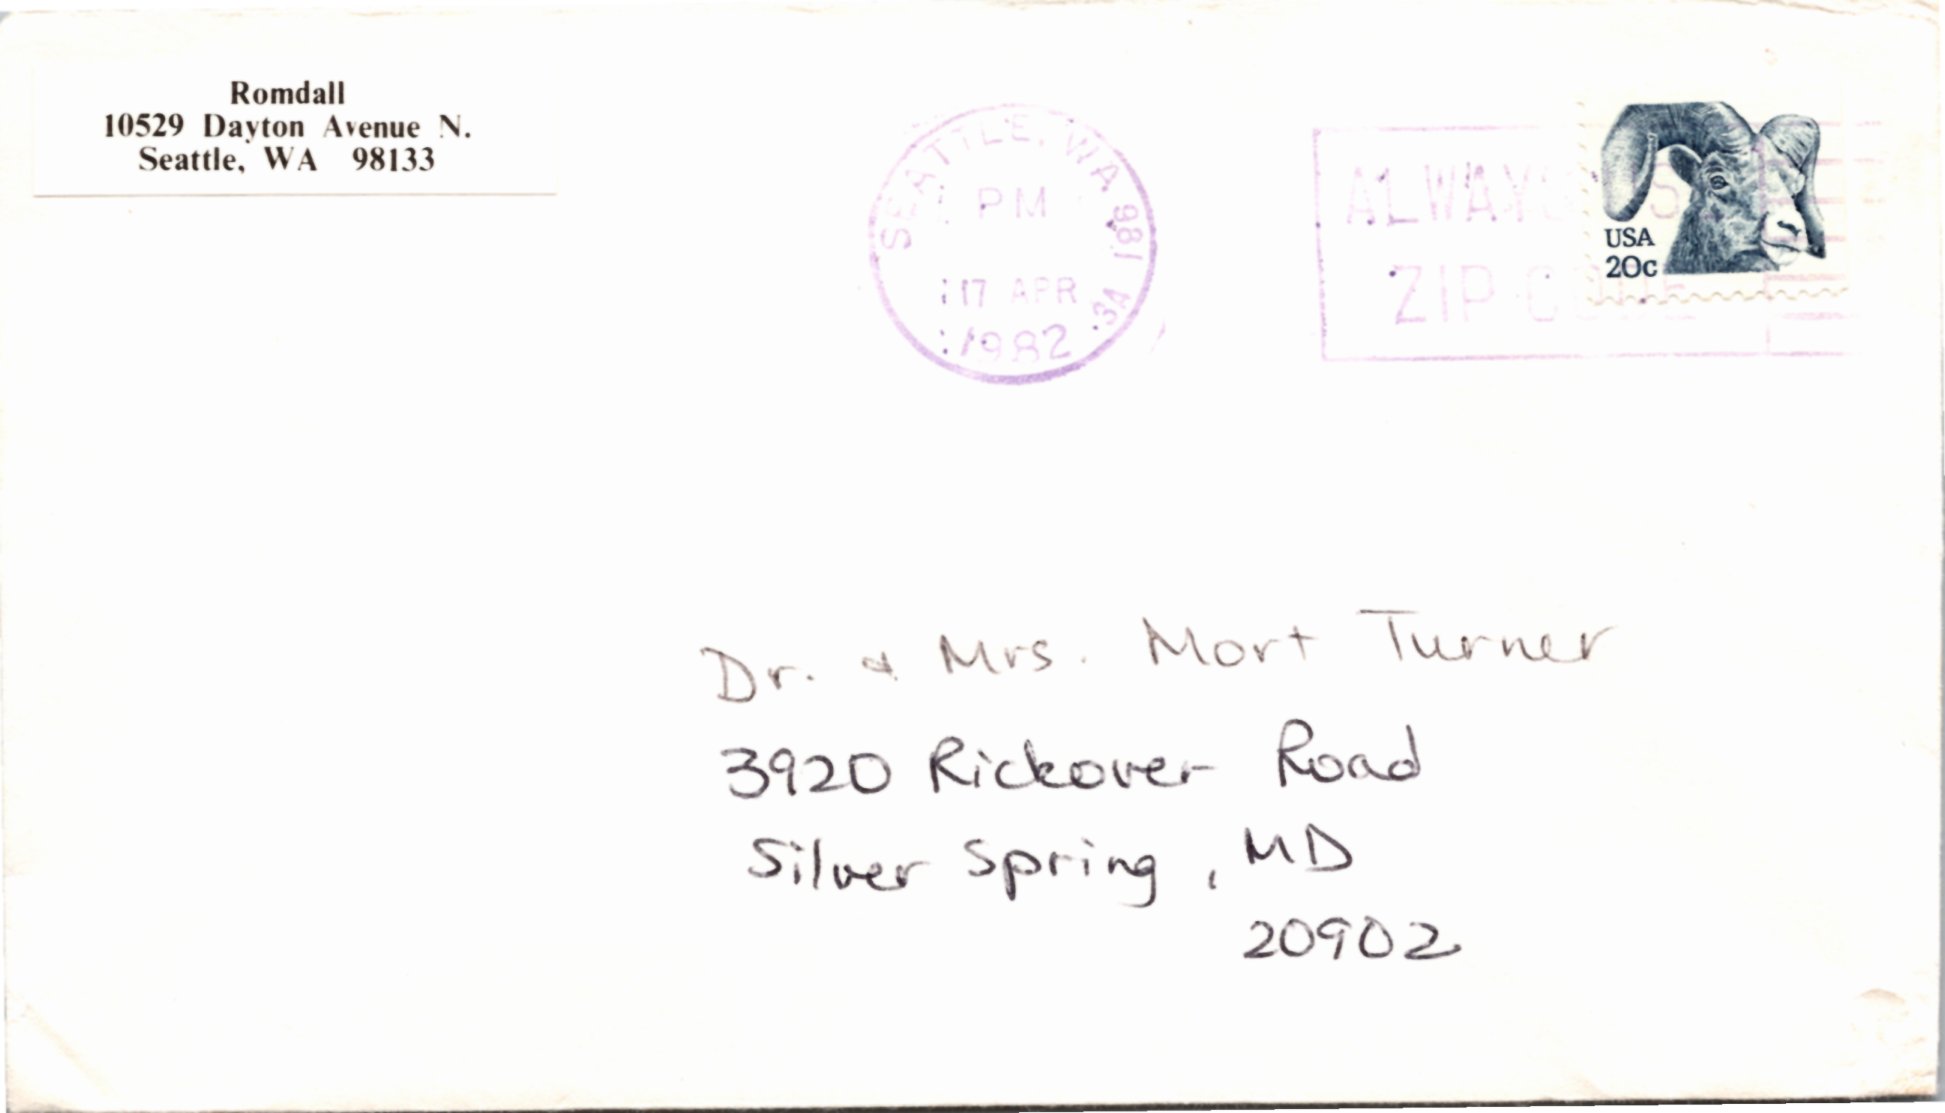 Romdall
10529 Dayton Avenue N.
Seattle, WA 98133
SEATTLE, WA 981 3A
PM
17 APR
1982
ALWAYS USE
ZIP CODE
USA
20c
Dr. & Mrs. Mort Turner
3920 Rickover Road
Silver Spring, MD
20902